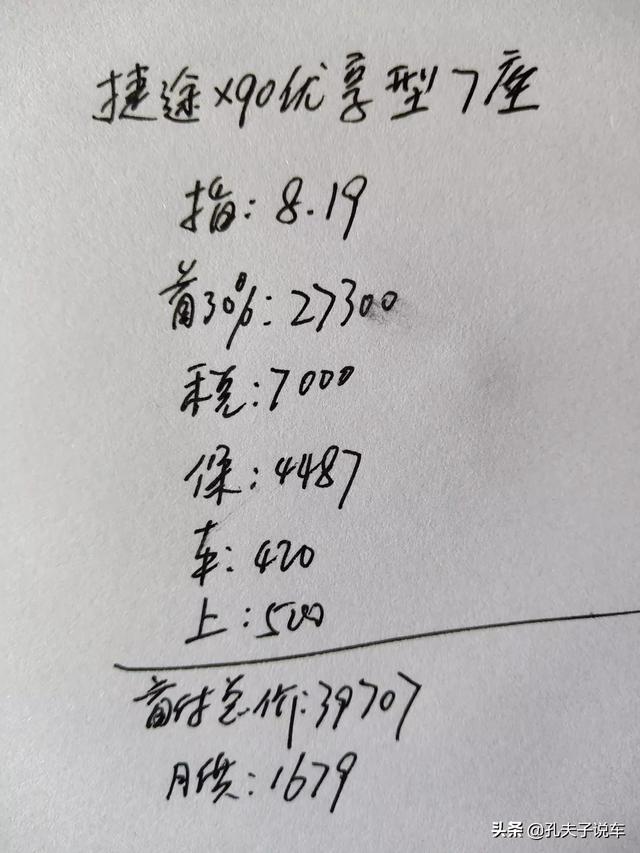 捷途x90优享型7座
指:8.19
首30%:27300
税:7000
保:4487
车:420
上:500
首付总价:39707
月供:1679
头条 @孔夫子说车